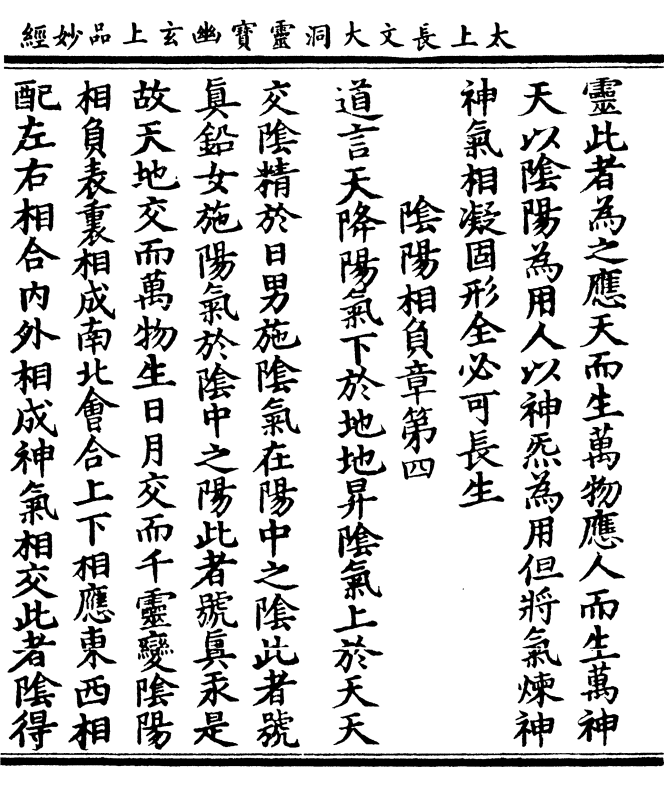 太上長文大洞靈寶幽玄上品妙經
靈此者為之應天而生萬物應人而生萬神
天以陰陽為用人以神炁為用但將氣煉神
神氣相凝固形全必可長生
陰陽相負章第四
道言天降陽氣下於地地昇陰氣上於天天
交陰精於日男施陰氣在陽中之陰此者號
眞鉛女施陽氣於陰中之陽此者號眞汞是
故天地交而萬物生日月交而千靈變陰陽
相負表裏相成南北會合上下相應東西相
配左右相合內外相成神氣相交此者陰得